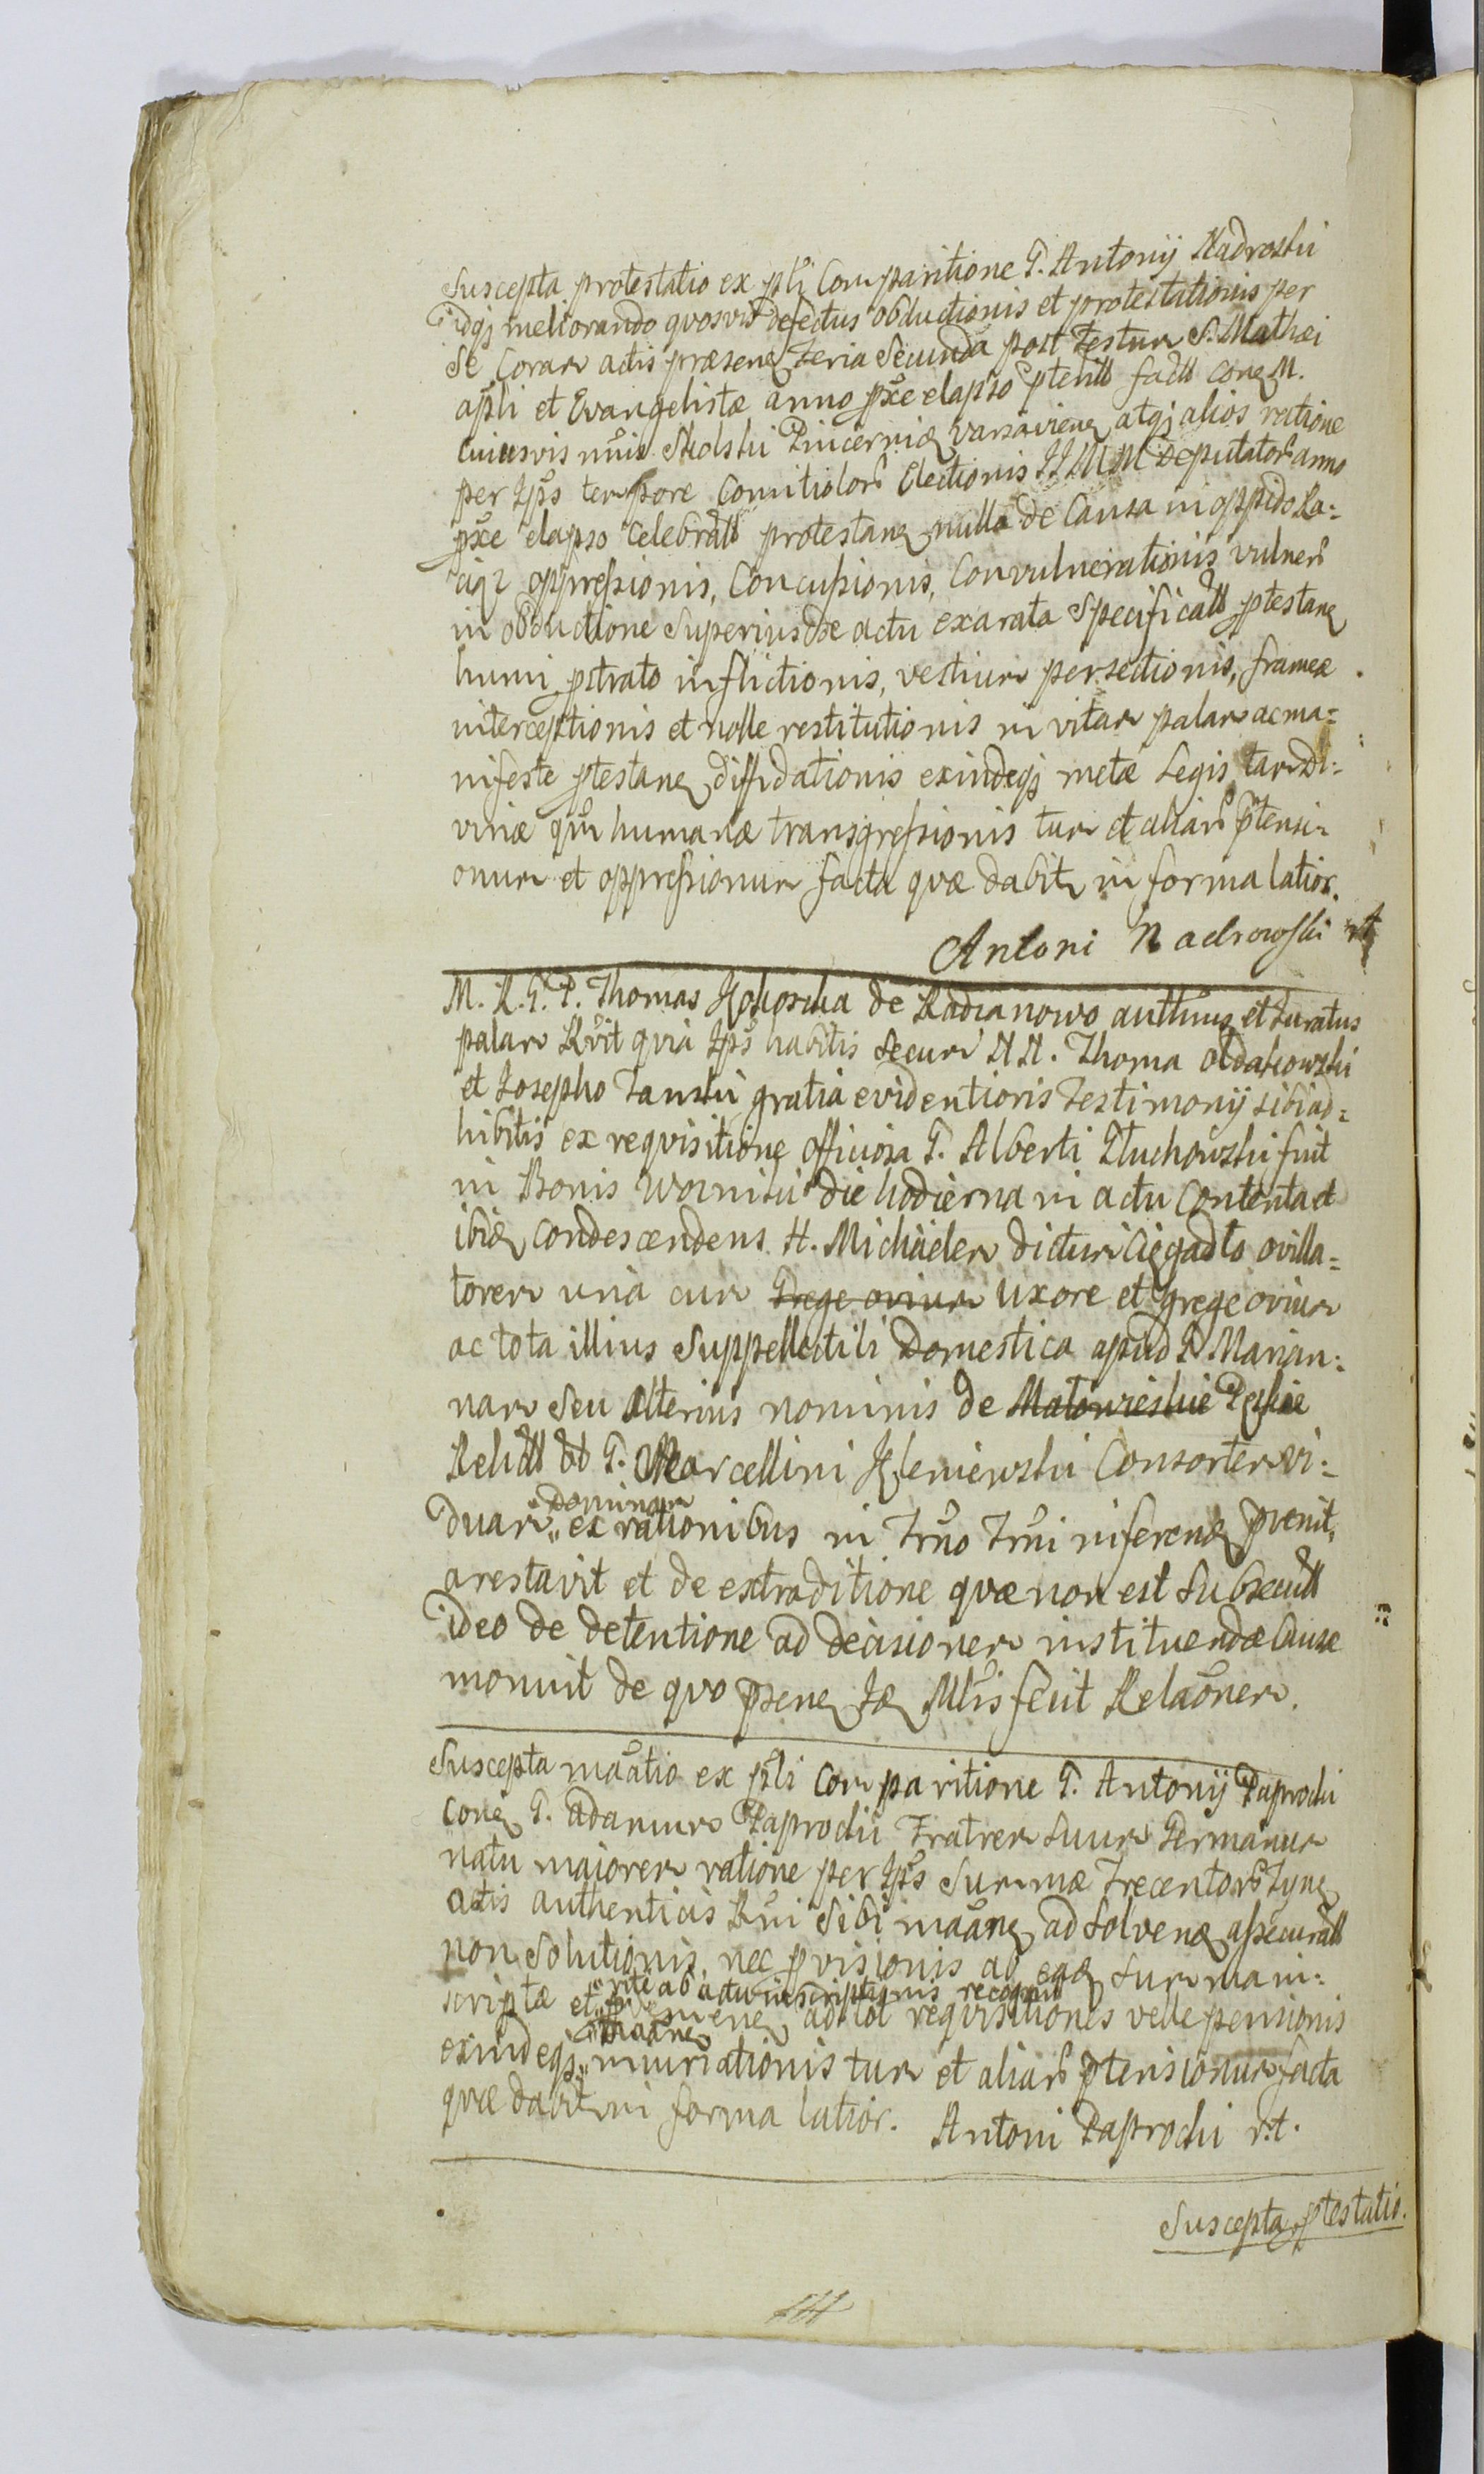 Suscepta protestatio ex pħi Comparitione G. Antonij Nadroski
Idqȝ meliorando qvosvis defectus obductionis et protestationis per
Se Coram actis præsen Feria Secunda post Festum S. Mathæi
apłi et Evangelistæ anno pxe elapso ptenll factt con M.
cuiusvis nuis Skolski Pincernia Varsavien atqȝ alios ratione
per Jps tempore Comitiolor Electionis JJ MM Deputator anno
pxe elapso Celebratt protestan nulla de Causa in oppido Ra-
ciąz oppressionis, Concussionis, Convulnerationis vulner
in obductione Superiusde actu exarata Specificatt ptestan
humi pstrato inflictionis, vestium persectionis, frameæ
interceptionis et nolle restitutionis in vitam palam ac ma=
nifeste ptestan diffidationis exindeqȝ metæ Legis tam di=
vinæ qm humanæ transgressionis tum et aliar ptensi-
onum et oppressionum facta qvæ dabit in forma latior.
Antoni Nadrowski
M. R. G. P. Thomas Kokoszka de Radzanowo authus et Juratus
palam Rvit qvia Jps habitis Secum N N. Thoma Oldakowski
et Josepho Janski gratia evidentioris Testimonij sibi ad=
hibitis ex reqvisitione officiosa G. Alberti Głuchowski fuit
in Bonis Worniski die hodierna in actu Contenta et
ibid condescendens H. Michäelem dictum Cięgadło ovilla=
torem una cum Grege ovium Uxore et grege ovium
ac tota illius Suppellectili Domestica apud G Marian=
nam Seu alterius nominis de Małowieskie Pęskie
Relictt ol G. Marcellini Kleniewski Consortem vi=
Dominam
duam ex rationibus in Trno Trni inferend pvenit,
arestavit et de extraditione qvæ non est Subsecutt
ideo de detentione ad decisionem instituendæ Causæ
monuit de qvo psen Jd Mtris fecit Relaonem.
Suscepta maatio ex pħi Comparitione G. Antonij Paprocki
con G. Adamum Paprocki Fratrem Suum Germanum
natu maiorem ratione per Jps Summæ Trecentor Tyn
actis authenticis Rni Sibi maan ad Solvend assecuratt
non Solutionis, nec pvisionis ad ead Summam in=
rite ab actu inscriptionis recognit
scriptæ et ad tot reqvisitiones velle pensionis
maan
exindeqȝ iniuriationis tum et aliar ptensionum facta
qvæ dabit in forma latior. Antoni Paprocki r.t.
Suscepta ptestatio.